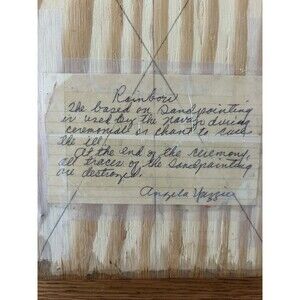 Rainbow
The based on Sandpainting
is used by the navajo during
ceremonials or chant to cure
the ill.
At the end of the ceremony,
all traces of the sandpainting
are destroyed.
Angela